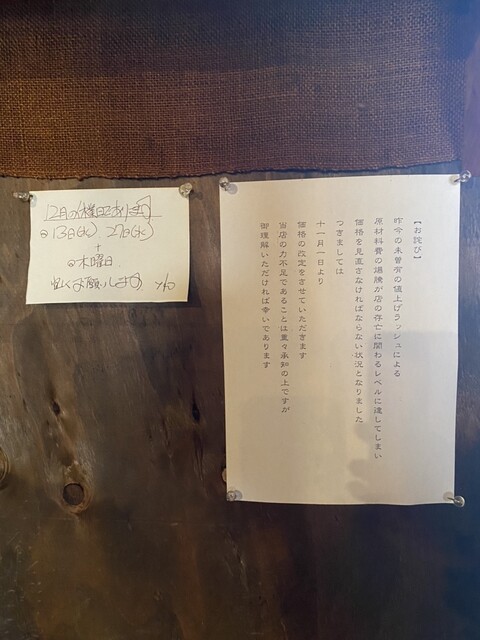 12月の休業日であります
◎13日(水) 27日(水)
+
◎木曜日
宜しくお願いします
【お詫び】
昨今の未曾有の値上げラッシュによる
原材料費の爆騰が店の存亡に関わるレベルに達してしまい
価格を見直さなければならない状況となりました
つきましては
十一月一日より
価格の改定をさせていただきます
当店の力不足であることは重々承知の上ですが
御理解いただければ幸いであります